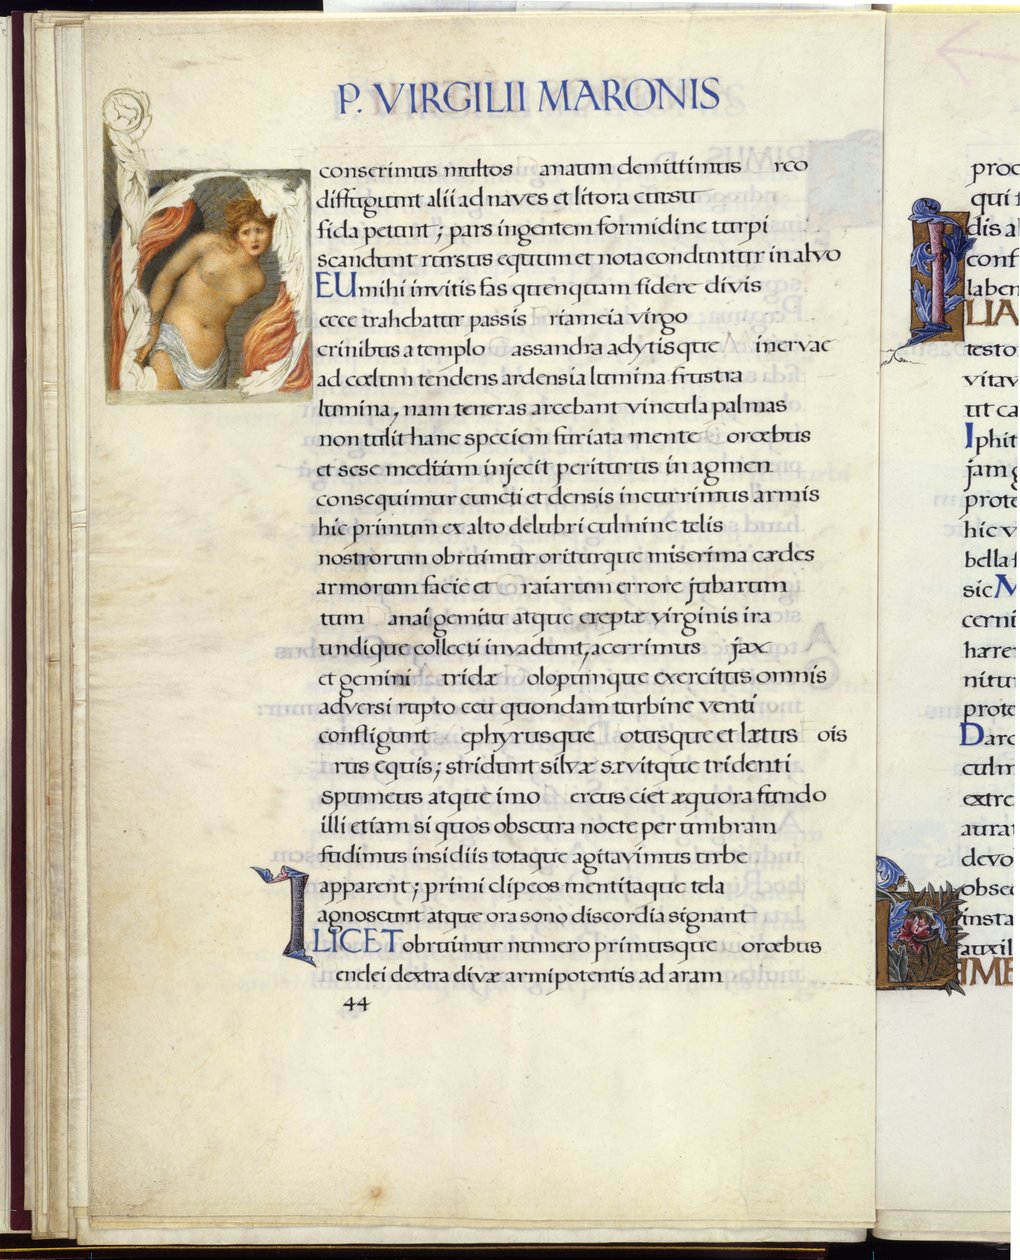 P. VIRGILII MARONIS
conserimus multos anaum demittimus rco
diffugiunt alii ad naves et litora cursu
fida petunt; pars ingentem formidine turpi
scandunt rursus equum et nota conduntur in alvo
HEU mihi invitis fas quenquam fidere divis
ecce trahebatur passis riameia virgo
crinibus a templo assandra adytisque inervae
ad cœlum tendens ardensia lumina frustra
lumina, nam teneras arcebant vincula palmas
non tulit hanc speciem furiata mente orœbus
et sese medium injecit periturus in agmen
consequimur cuncti et densis incurrimus armis
hic primum ex alto delubri culmine telis
nostrorum obruimur oriturque miserima cædes
armorum facie et raiarum errore jubarum
tum anai gemitu atque ereptæ virginis ira
undique collecti invadunt, acerrimus jax
et gemini tridæ olopumque exercitus omnis
adversi rupto ceu quondam turbine venti
confligunt ephyrusque otusque et lætus ois
rus equis; stridunt silvæ sævitque tridenti
spumeus atque imo ereus ciet æquora fundo
illi etiam si quos obscura nocte per umbram
fudimus insidiis totaque agitavimus urbe
apparent; primi clipeos mentitaque tela
agnoscunt atque ora sono discordia signant
ILICET obruimur numero primusque orœbus
enelei dextra divæ armipotentis ad aram
44
proc
qui f
dis al
conf
laben
ILIA
testo
vitav
ut ca
Iphit
jam g
prote
hic v
bella f
sic M
cerni
hære
nitur
prote
Darc
culm
extre
aurat
devo
obsed
insta
auxil
IME